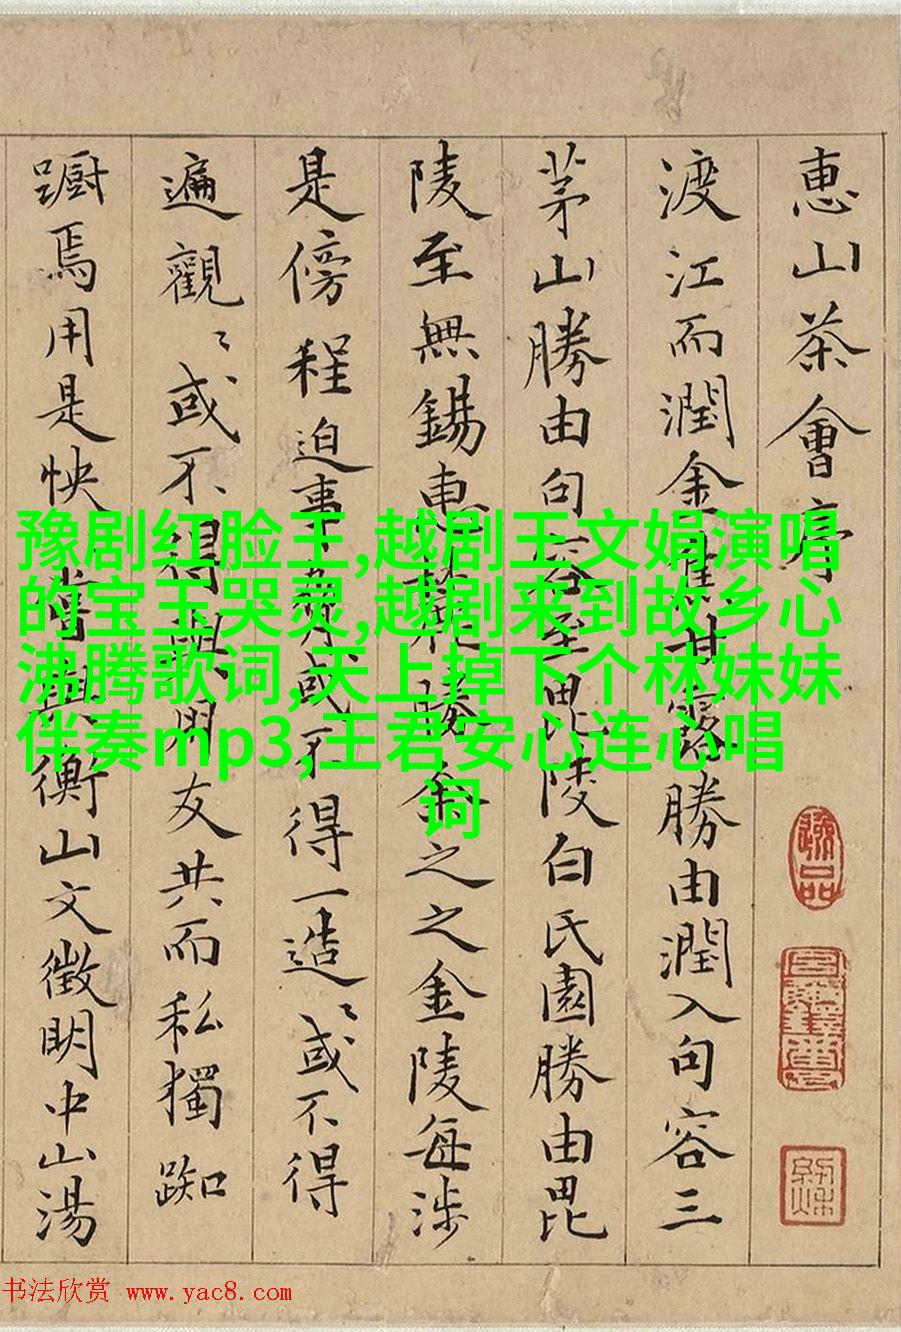 惠山茶會序
渡江而潤金焦甘露勝由潤入句容三
茅山勝由句容至毘陵白氏園勝由毘
陵至無錫惠麓勝余之之金陵每涉
是傍程迫事奪或不得一造〻或不得
遍觀〻或不得與朋友共而私獨踟
躕焉用是怏
衡山文徵明中山湯
豫剧红脸王,越剧王文娟演唱
的宝玉哭灵,越剧来到故乡心
沸腾歌词,天上掉下个林妹妹
伴奏mp3,王君安心连心唱
词
书法欣赏 www.yac8.com